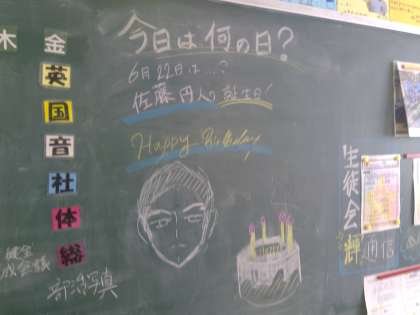 今日は何の日?
6月22日は…?
佐藤 円人の誕生日!
Happy Birthday
木 金
英
国
音
社
体
総
部活写真
生徒会
輝 通信